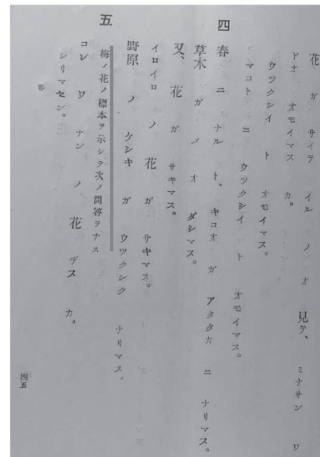 花 ガ サイテ イル ノ オ 見テ、 ミナサン ワ
ドオ オモイマス カ。
ウツクシイ ト オモイマス。
マコト ニ ウツクシイ ト オモイマス。
四 春 ニ ナルト、キコオ ガ アタタカ ニ ナリマス。
草木 ガ メ オ ダシマス。
又、 花 ガ サキマス。
イロイロ ノ 花 ガ サキマス。
野原 ノ ケシキ ガ ウツクシク ナリマス。
五 梅ノ花ノ標本ヲ示シテ次ノ問答ヲナス
コレ ワ ナン ノ 花 デス カ。
シリマセン。
四五